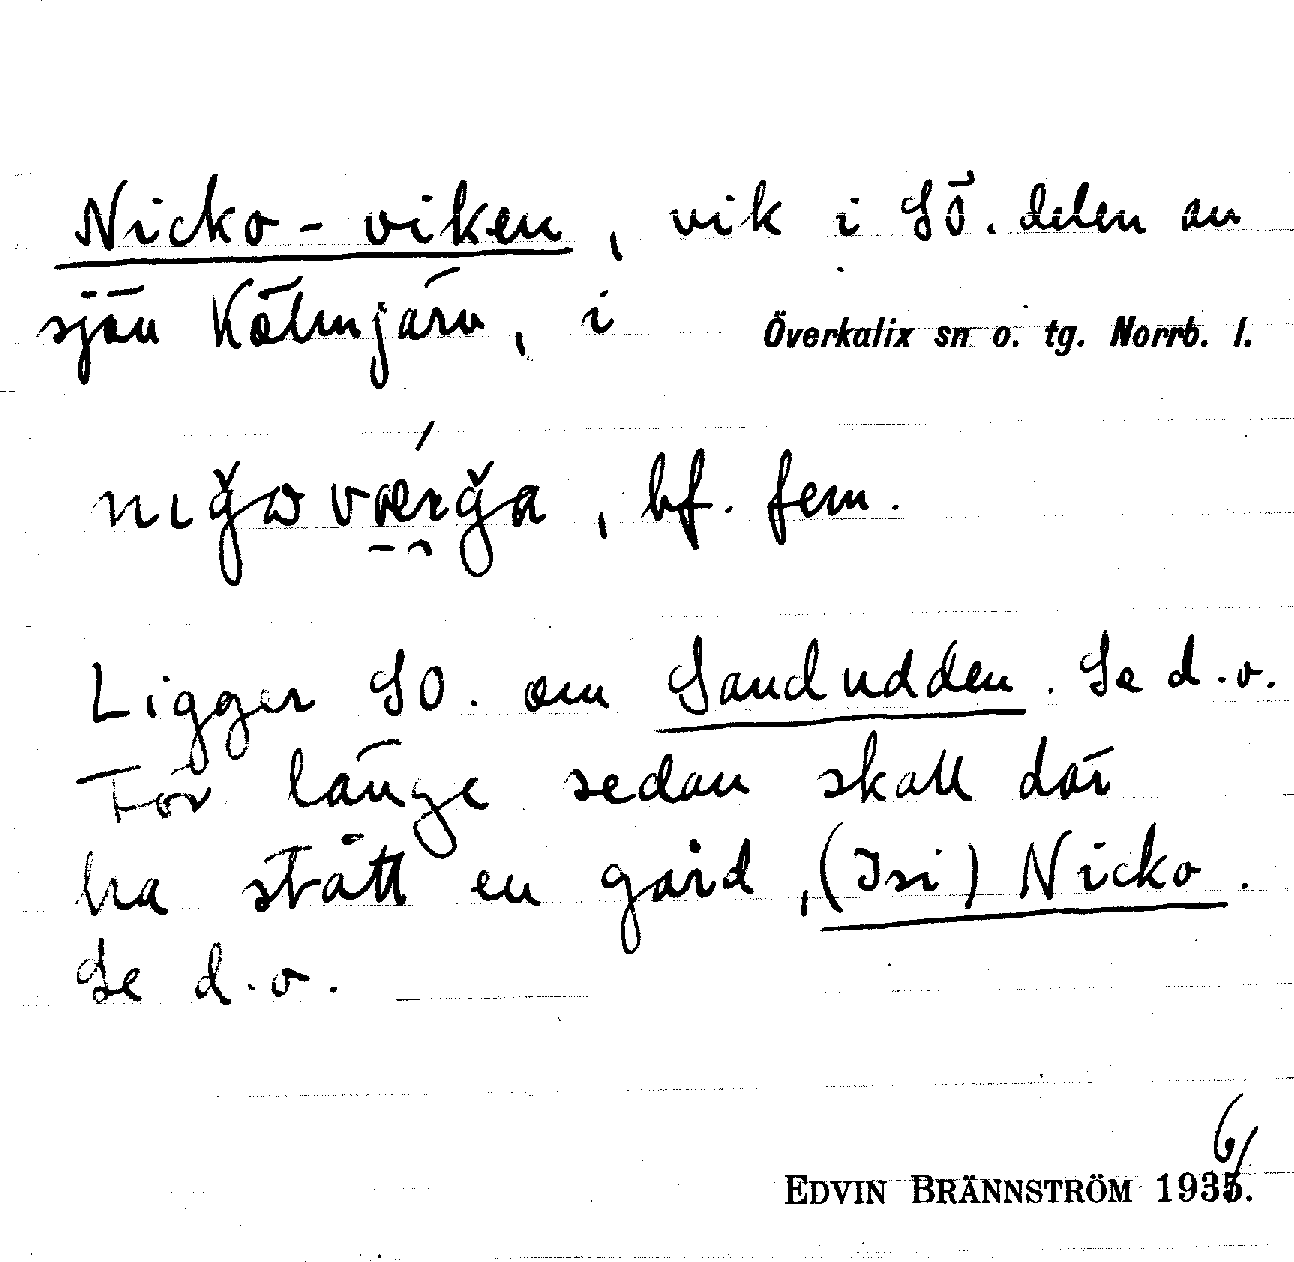 Nicko-viken, vik i SÖ. delen av
sjön Kölmjärv, i Överkalix sn o. tg. Norrb. l.
bf. fem.
Ligger SO. om Sandudden. Se d.o.
För länge sedan skall där
ha stått en gård, (Isi) Nicko.
Se d.o.
EDVIN BRÄNNSTRÖM 1936.